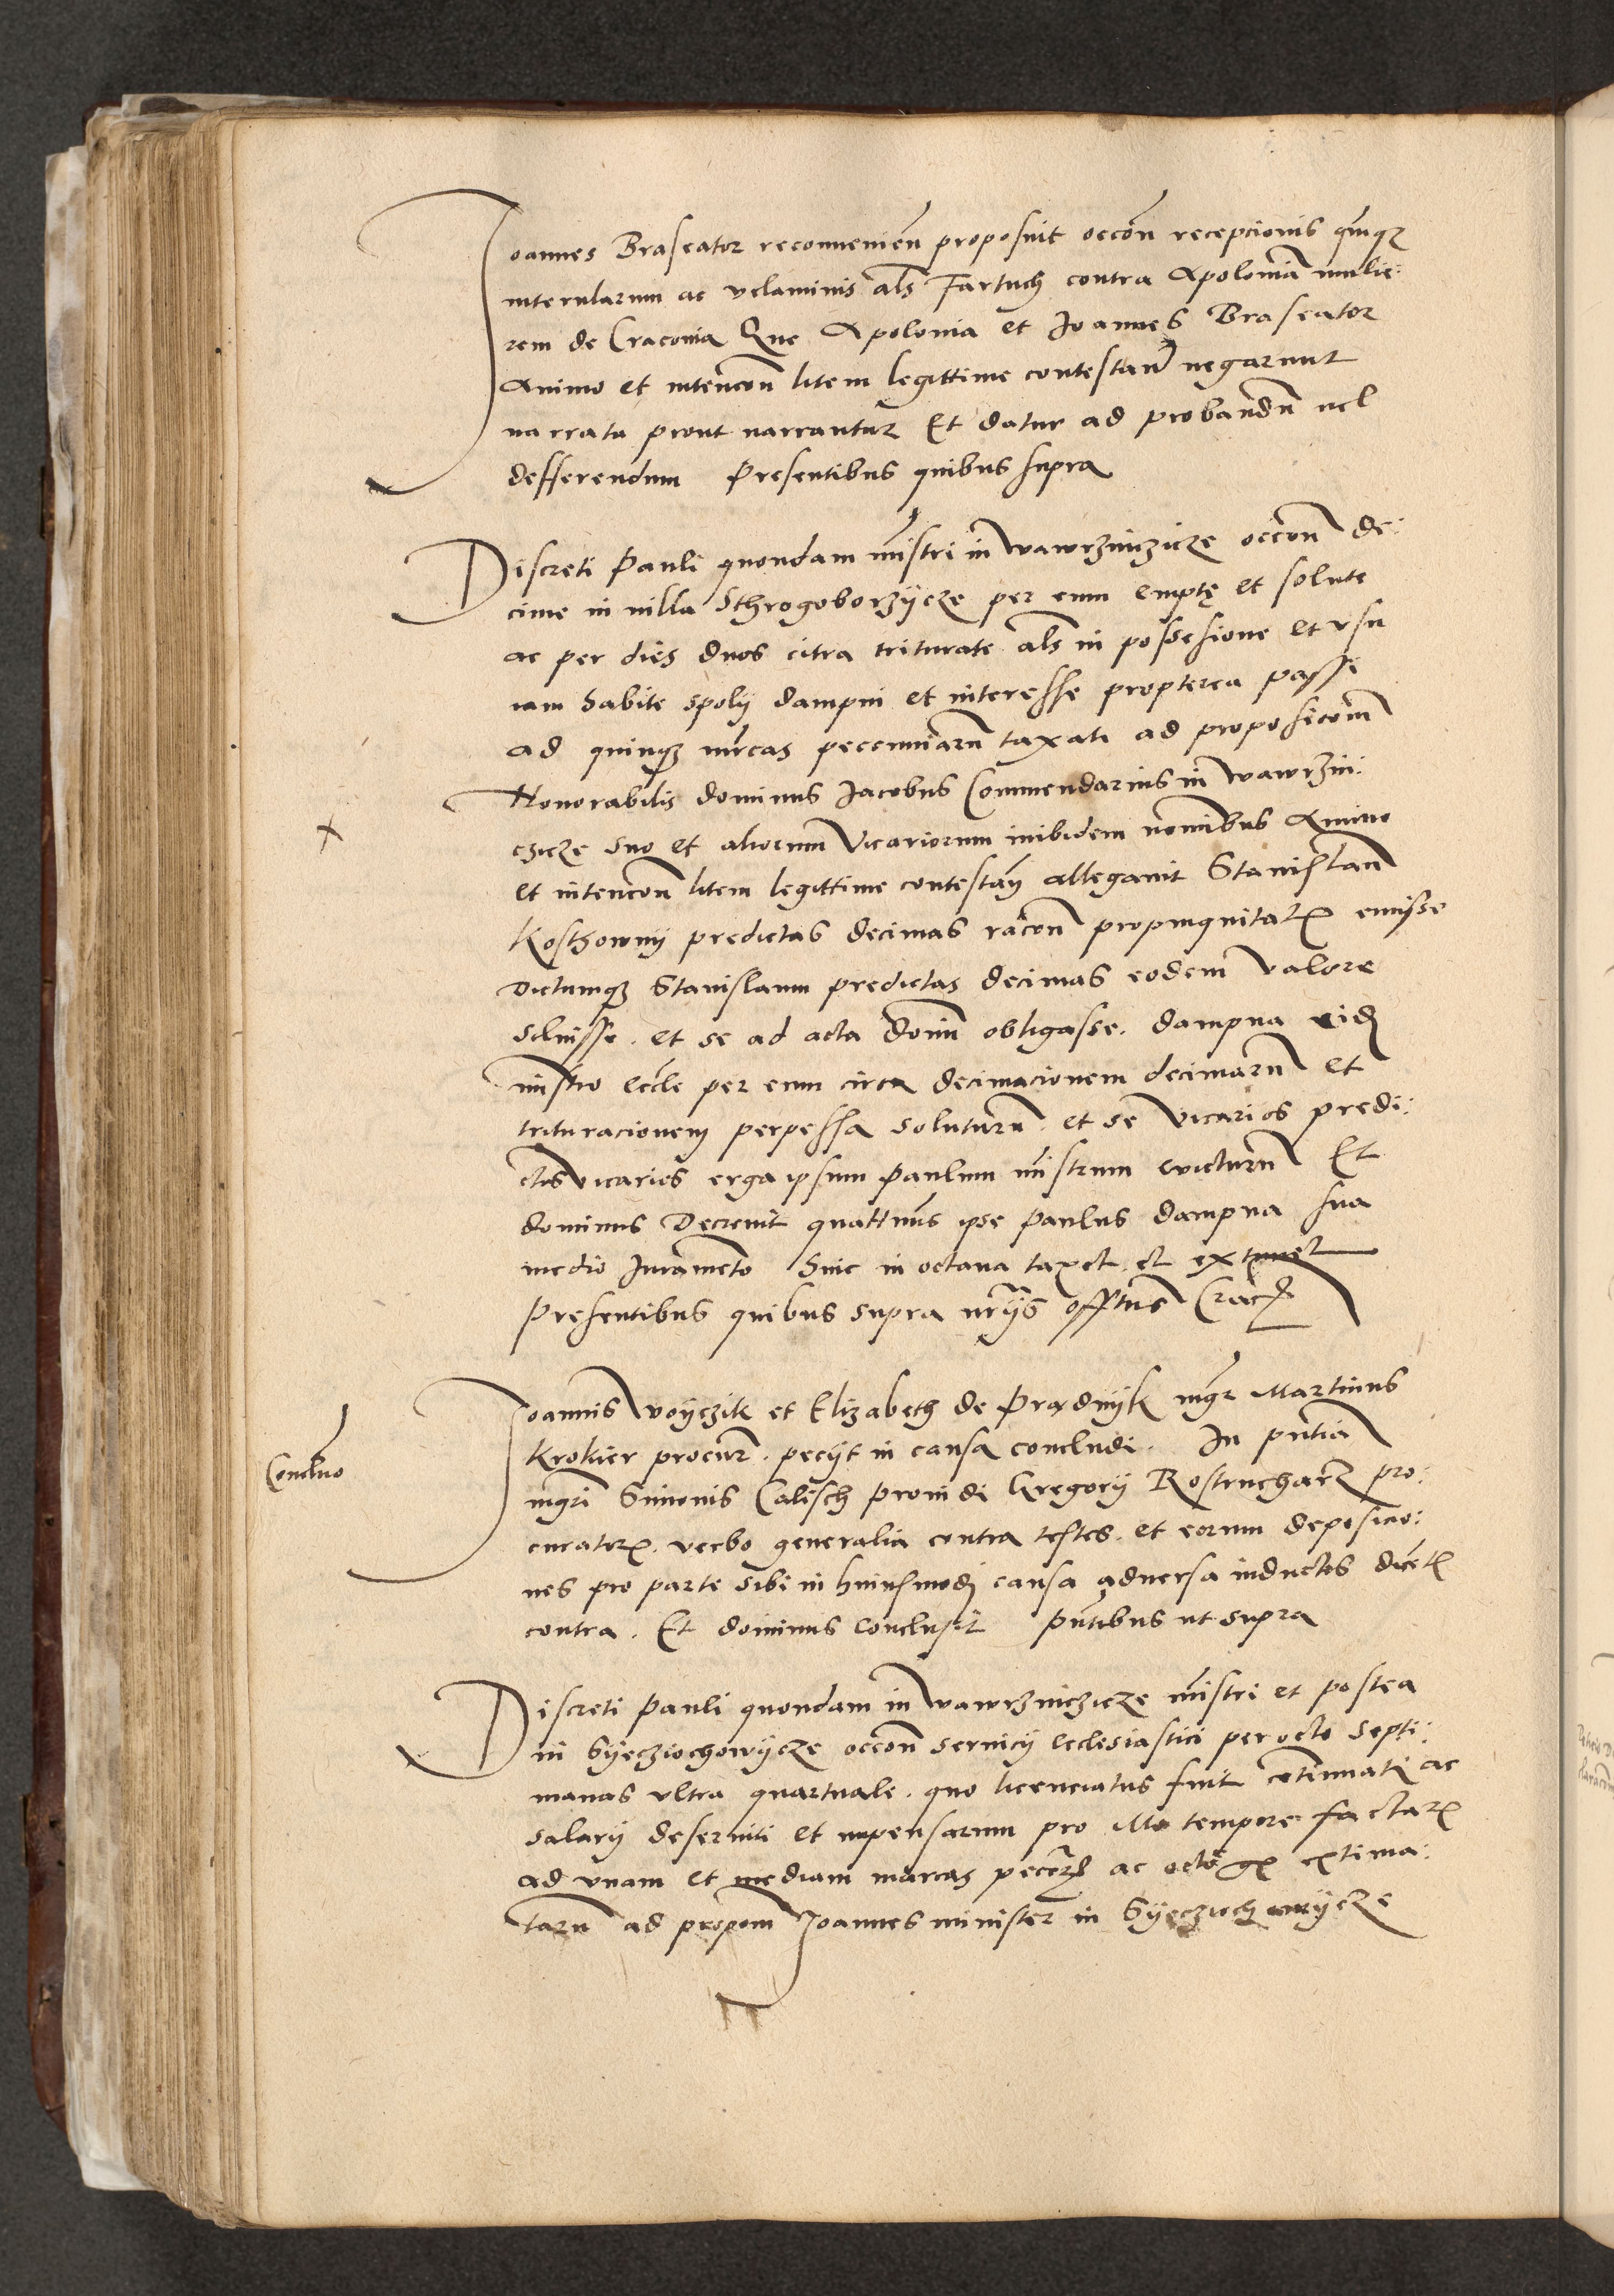 Joannes Braseator reconvenien proposuit occon recepcionis quinqz
interularum ac velaminis als Fartuch contra Apoloniam mulie:
rem de Cracovia Que Apolonia et Joannes Braseator
Animo et intencon litem legittime contestan negarunt
narrata prout narrantur Et datur ad proband vel
defferendum Presentibus quibus supra
Discreti Pauli quondam mistri in Wawrzinczicze occon de:
cime in villa Sthrogoborzycze per eum emptę et solute
ac per dies duos citra triturate als in possesione et usu
iam habite spoly dampni et interesse propterea passi
ad quinqz mrcas pecuniaru taxati ad proposicom
Honorabilis dominus Jacobus Commendarius in Wawrzin:
czicze suo et aliorum vicariorum inibidem nominibus Animo
et intencon litem legittime contestan allegavit Stanislau
Kosthowny predictas decimas racon propinquitatis emisse
Dictumqz Stanislaum predictas decimas eodem valore
solvisse. et se ad acta domini obligasse. dampna eid
mistro eccle per eum circa decimacionem decimaru et
trituracionem perpessa soluturu. et se vicarios predi:
ctos vicarios erga ipsum Paulum mistrum evicturu Et
dominus Decrevit quattenus ipse Paulus dampna sua
medio Juramento hinc in octava taxet. et
Presentibus quibus supra nrys Crac
Joannis Woyczik et Elizabeth de Prądnyk mgr Martinus
Krokier procur. pecyt in causa concludi. In pntia
Concluo
mgri Simonis Calisch providi Gregory Rostruchartz pro:
curatoris. verbo generalia contra testes. et eorum deposicio:
nes pro parte sibi in huiusmodi causa adversa inductos dicent
contra. Et dominus conclusit Pntibus ut supra
Discreti Pauli quondam in Wawrzinczicze mistri et postea
in Syecziechowycze occon servicy ecclesiastici per octo septi:
manas ultra quartuale. quo licenciatus fuit continuati ac
salary deserviti et impensarum pro illo tempore factaru
ad unam et mediam marcas ac octo gr extima:
taru ad propom Joannes minister in Syeczyechowycze